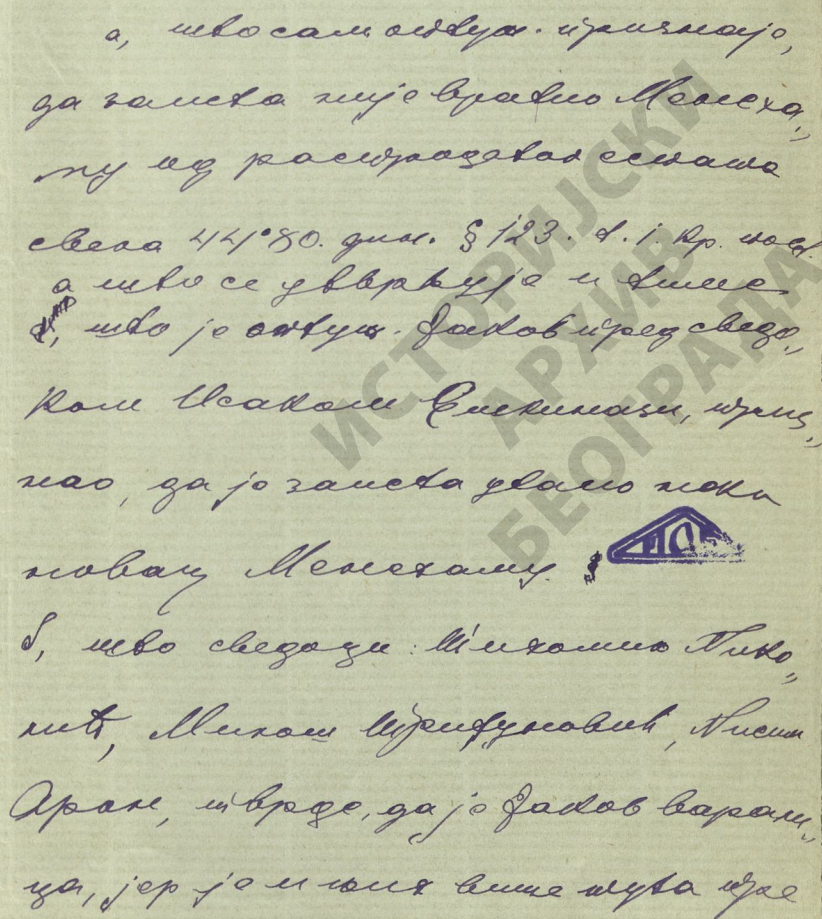 а, што сам оптуж. признаје,
да заиста није вратио Менеха„
му од распродатих сенаша
свега 44·80. дин. § 123. т. 1. кр. пост.
а што се утврђује и тиме
што је оптуж. Јаков пред сведо„
ком Исаком Ешкенази, приз„
нао, да је заиста узео неки
новац Менехаму.
б, што сведоци: Михаило Нико„
лић, Милош Трифуновић, Нисим
Арон, тврде, да је Јаков варали„
ца, јер је и њих више пута пре
ИСТОРИЈСКИ
АРХИВ
БЕОГРАДА